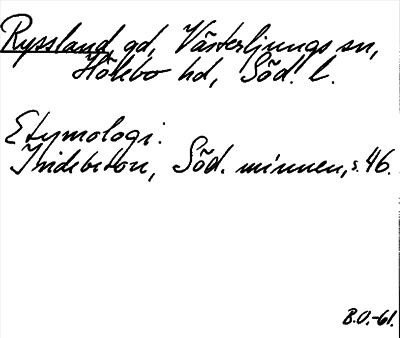 Ryssland, gd, Västerljungs sn,
Hölebo hd, Söd. l.
Etymologi.
Indebetou, Söd. minnen, s. 46.
B.O.-61.